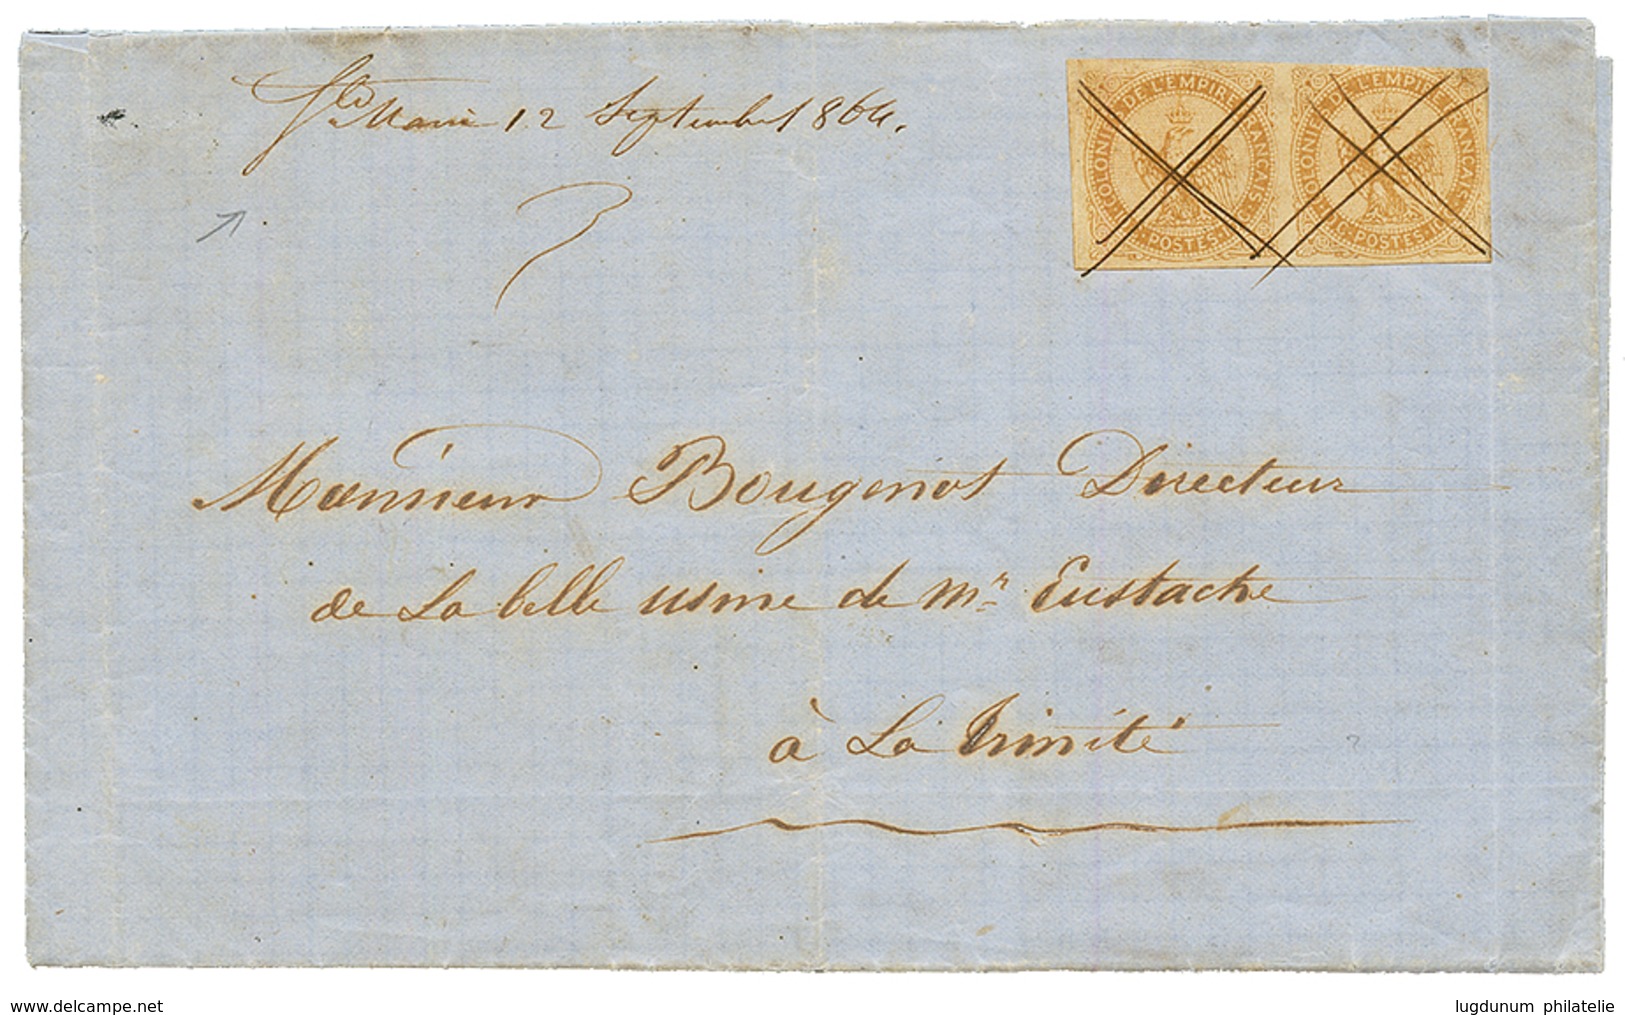 Ste Marie 12 Septembre 1864.
COLONIES DE L'EMPIRE FRANÇAIS
10 C. POSTES. 10 C.
COLONIES DE L'EMPIRE FRANÇAIS
10 C. POSTES. 10 C.
Monsieur Bougenot Directeur
de La belle usine de Mr Eustache
à La Trinité
www.delcampe.net
lugdunum philatelie